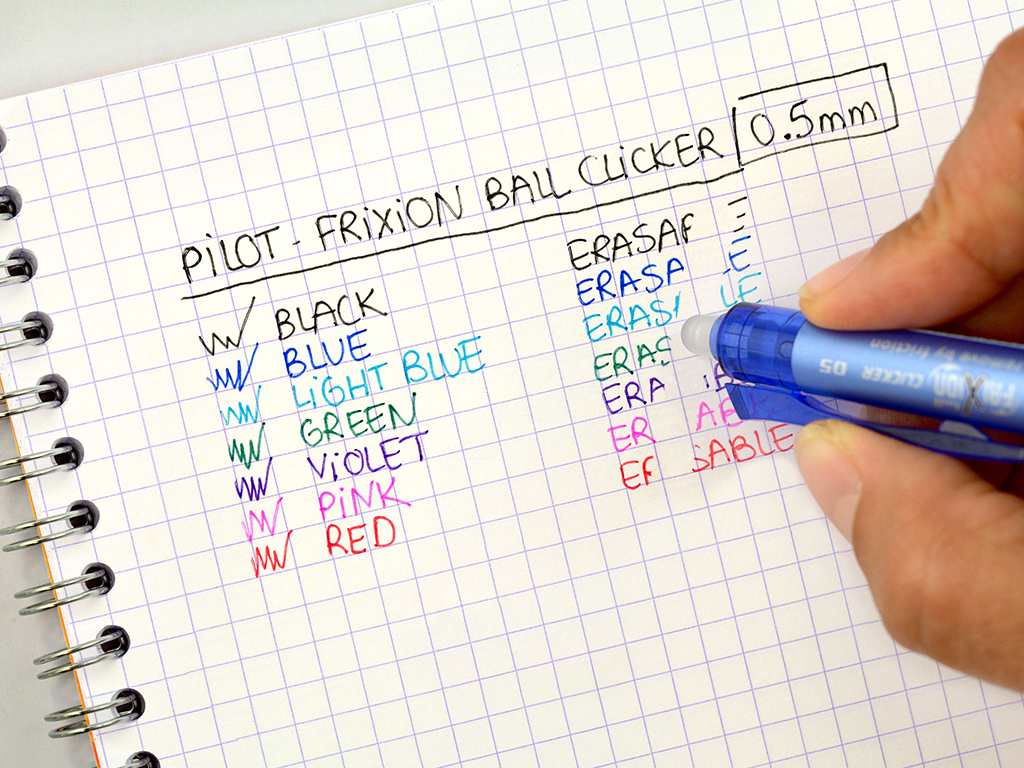 PiLOT - FRiXiON BALL CLiCKER 0.5mm
BLACK
BLUE
LiGHT BLUE
GREEN
ViOLET
PiNK
RED
ERASA E
ERASA LE
ERAS LE
ERAS
ERA
ER AB
E SABLE
FRiXiON CLICKER 05
by friction